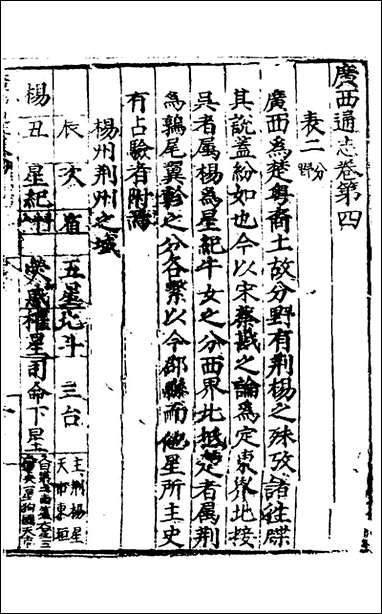 廣西通志卷第四
表二 分野
廣西爲楚粤裔土故分野有荆楊之殊攷諸往牒
其說蓋紛如也今以宋蔡戡之論爲定東界地接
吳者属楊爲星紀牛女之分西界北抵楚者属荆
爲鶉尾翼軫之分各繫以今郡縣而他星所主史
有占驗者附焉
楊州荆州之域
辰 次 宿 五星 北斗 三台 主荆楊星 天市東垣
楊 丑 星紀 斗牛 熒惑 權星 司命下星